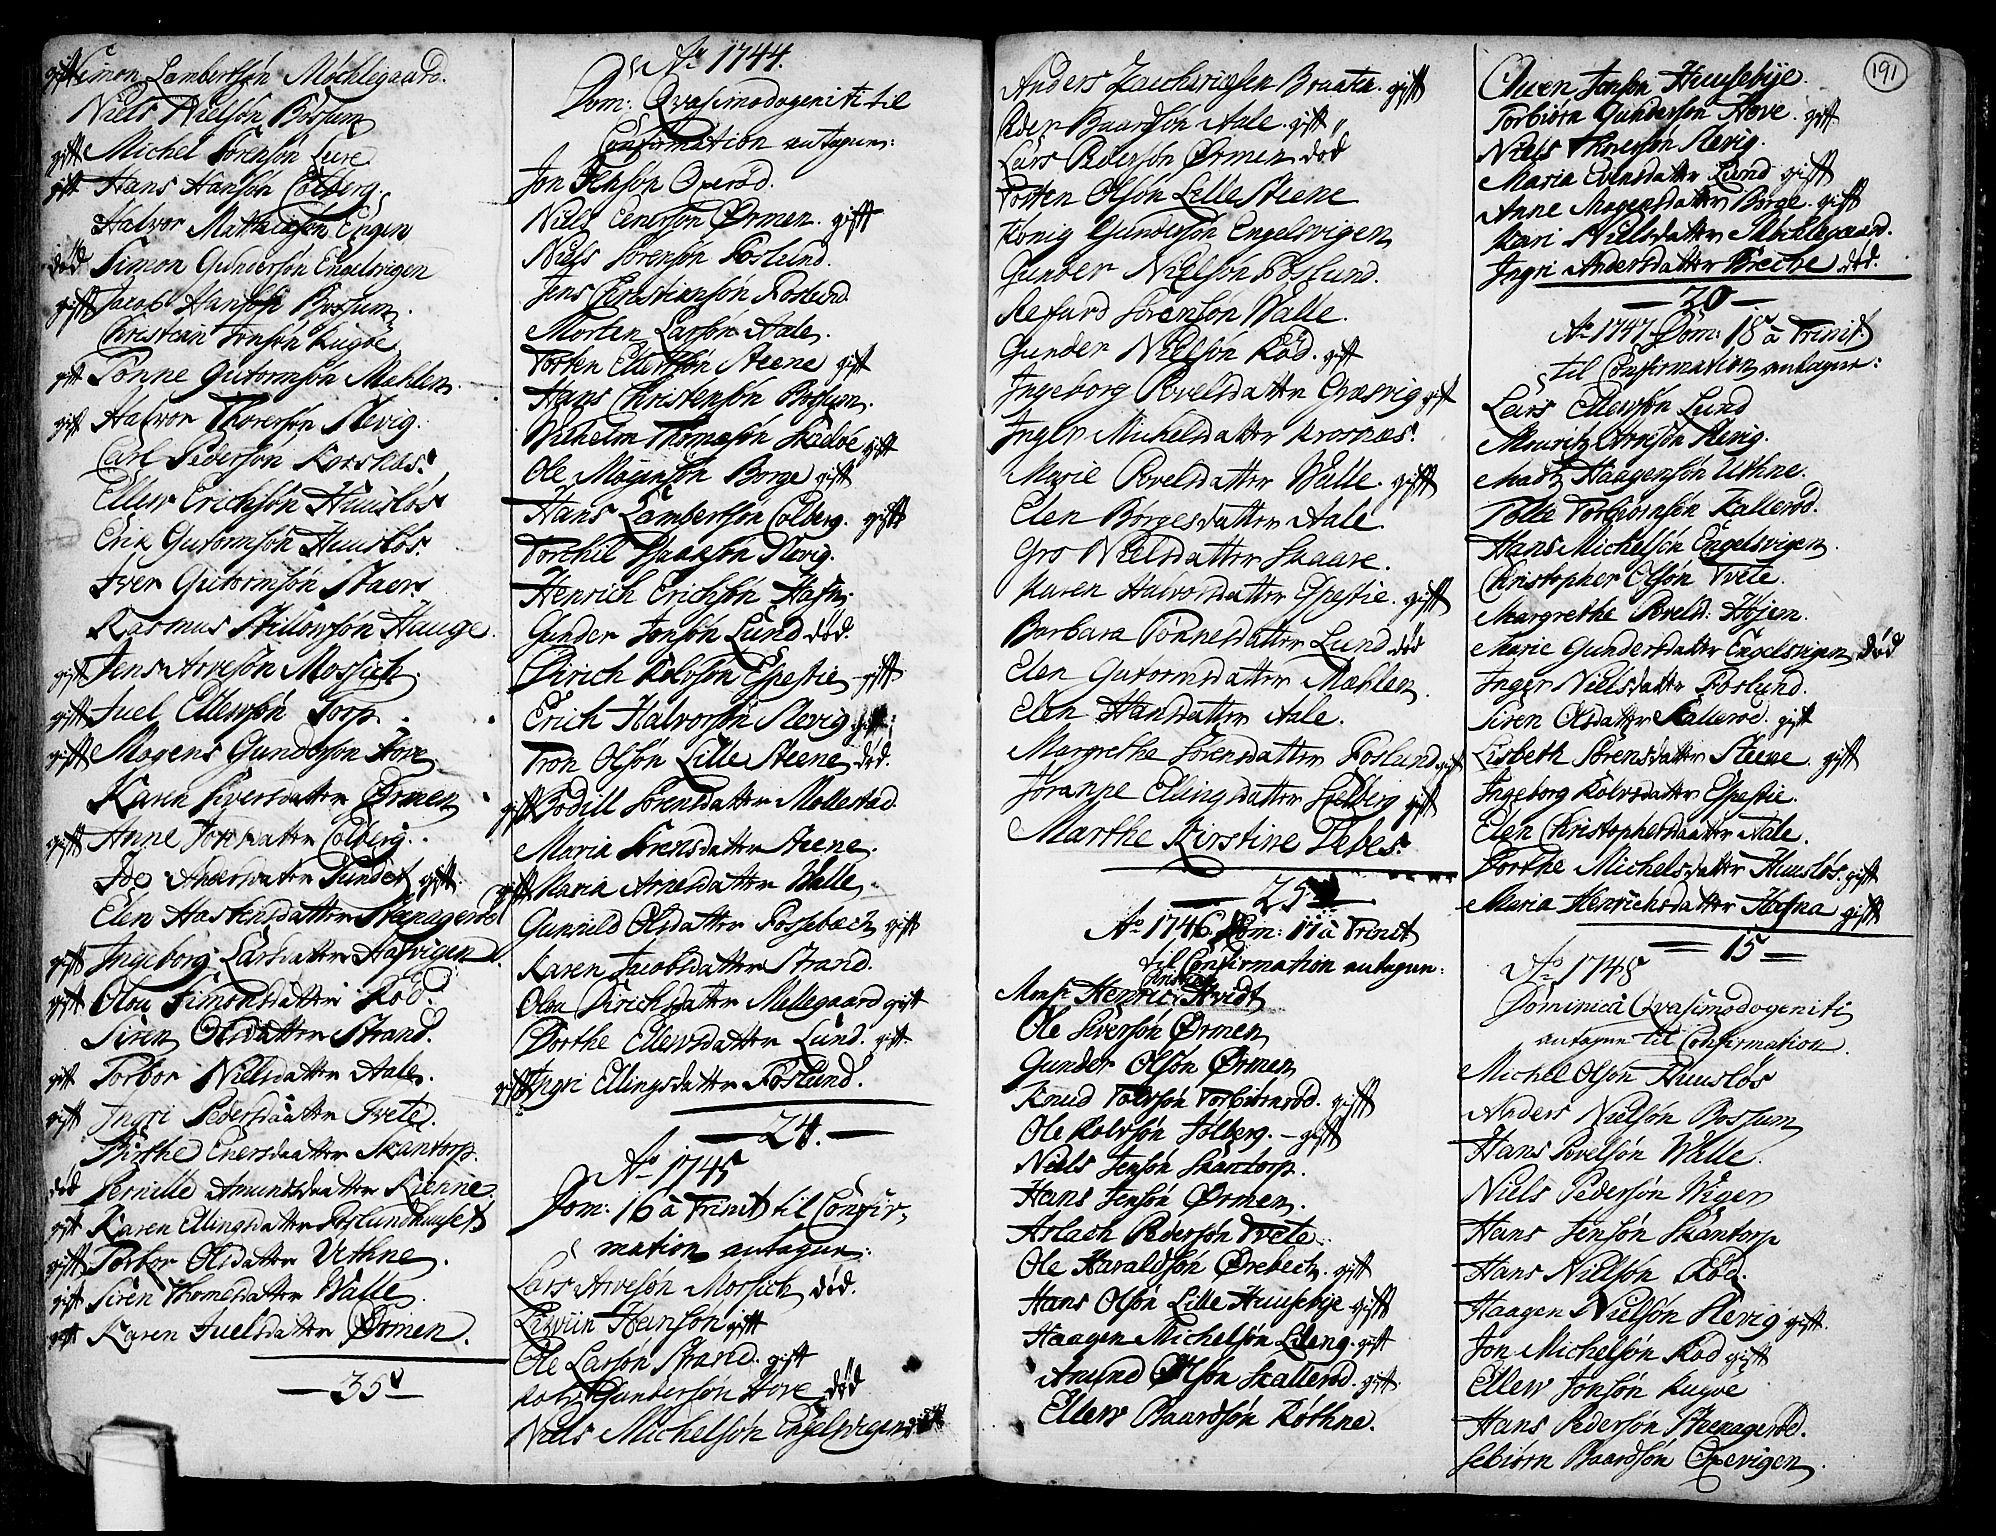 gift Simon Lambertsön Möchlegaard.
Niels Nielsön Bossum
gift Michel Sörensön Lure
gift Hans Hansön Colberg.
Halvor Mathiasön Engen
död Simon Gundersön Engelsvigen
gift Jacob Hansön Bossum.
Christian Jonsön Kugve
gift Tönne Gutormsön Mæhlen.
gift Halvor Thoresön Slevig.
Carl Pedersön Korsnæs.
Ellew Erichsön Huuslös
Erik Gutormsön Huuslös.
Iver Gutormsön Staer
Rasmus Stillowsön Hauge.
gift Jens Arvesön Mossich.
gift Juel Ellewsön Torp.
gift Mogens Gundersön Hove
Karen Siversdatter Örmen
gift Anne Joensdatter Colberg.
Andersdatter gift.
Elen Hastensdatter Steenageröd
gift Ingeborg Larsdatter Hafvigen.
gift Olou Simonsdatter Röd.
Siren Olsdatter Strand.
gift Torbor Nielsdatter Aale.
gift Ingri Pedersdaatter Tvete.
Birthe Enersdaatter Skantorp.
död Pernille Amundsdaatter Kienne.
gift Karen Ellingsdatter Foslundhuuset
gift Torbor Olsdatter Uthne.
gift Siren Thomesdatter Walle.
gift Karen Juelsdatter Örmen.
— 35 —
Aº 1744.
Dom: Qvasimodogeniti til
Confirmation antagen:
Jon Jensön Oueröd.
Niels Enersön Örmen. gift
Niels Sörensön Foslund.
Jens Christiansön Foslund
Morten Larsön Aale.
Torsten Ellewsön Steene gift
Hans Christensön Bossum.
Wilhelm Thomæsön Skadöe gift
Ole Mogensön Borge gift
Hans Lambertsön Colberg. gift
Torchil Haagsön Slevig.
Henrich Erichsön Hafn.
Gunder Jonsön Lund död.
Dirich Rolvsön Espestie gift
Erich Halvorsön Slevig gift
Tron Olsön Lille Steene död.
gift Bodill Sörensdatter Mollestad.
Maria Sörensdatter Steene.
gift Maria Arnesdatter Walle.
Gunnild Olsdatter Fossebech gift
Karen Jacobsdatter Strand.
Olou Dirichsdatter Mellegaard gift
Dorthe Ellewsdatter Lund. gift
gift Ingri Ellingsdatter Foslund.
— 24. —
Aº 1745
Dom: 16 à Trinit til Confir-
mation antagen:
Lars Arvesön Mossich död.
Hansön gift
Ole Larsön Strand. gift
Rolv Gundersön Hove död
Niels Michelsön Engelsvigen
191
Anders Zachrisön Braata. gift
Peder Baardsön Aale. gift
Lars Pedersön Örmen död
Torsten Olsön Lille Steene
König Gundersön Engelsvigen
Gunder Nielsön Foslund.
Refard Sörensön Walle.
Gunder Nielsön Röd. gift
Ingeborg Povelsdatter Græsvig gift
Inger Michelsdatter Krosnæs.
Marie Povelsdatter Walle. gift
Elen Börgesdatter Aale
Gro Nielsdatter Skaare.
Karen Halvorsdatter Espestie. gift
Barbara Tönnesdatter Lund död
Elen Gutormsdatter Mæhlen.
Elen Hansdatter Aale.
Margrethe Sörensdatter Foslund gift
Joranne Ellingsdatter Solberg gift
Marthe Kirstine Tebes.
— 25 —
Aº 1746 Dom: 11 à Trinit
til Confirmation antagen:
Mons. Henric Christian Hvidt
Ole Siversön Örmen
Gunder Olsön Örmen
Knud Tolvsön Torbiörnröd. gift
Ole Rolvsön Solberg. – gift
Niels Jensön Skantorp.
Hans Jensön Örmen.
Aslach Pedersön Tvete.
Ole Haraldsön Örebech. gift
Hans Olsön Lille Huusebye gift
Haagen Michelsön Lileng. gift
Amund Olsön Skalleröd. gift
Ellew Baardsön Röthne.
Owen Jensön Huusebye.
Torbiörn Gundersön Hove. gift
Niels Thoresön Slevig.
Maria Evensdatter Lund gift
Anne Mogensdatter Borge. gift
Kari Nielsdatter Möchlegaard.
Ingri Andersdatter Breche död.
— 20 —
Aº 1747 Dom: 18 à Trinit.
til Confirmation antagen:
Lars Ellewsön Lund
Mouritz Arnesön Slevig.
Madz Haagensön Uthne.
Tolle Torbiörnsön Kalleröd.
Hans Michelsön Engelsvigen.
Christopher Olsön Tvete.
Margrethe Povelsd: Höjen.
Marie Gundersdatter Engelsvigen död
Inger Nielsdatter Foslund.
Siren Olsdatter Skalleröd. gift
Lisbeth Sörensdatter Steene. gift
Ingeborg Rolvsdatter Espestie.
Elen Christophersdaatter Aale.
Dorthe Michelsdatter Huuslös. gift
Maria Henrichsdatter Hafna gift
— 15 —
Aº 1748
Dominica Qvasimodogeniti
antagen til Confirmation.
Michel Olsön Huuslös
Anders Nielsön Bossum
Hans Povelsön Walle.
Niels Pedersön Wigen
Hans Jensön Skantorp
Hans Nielsön Röd.
Haagen Nielsön Slevig gift.
Jon Michelsön Röd gift
Ellew Jonsön Kugve
Hans Pedersön Steenageröd.
Sebiörn Baardsön Öxevigen.